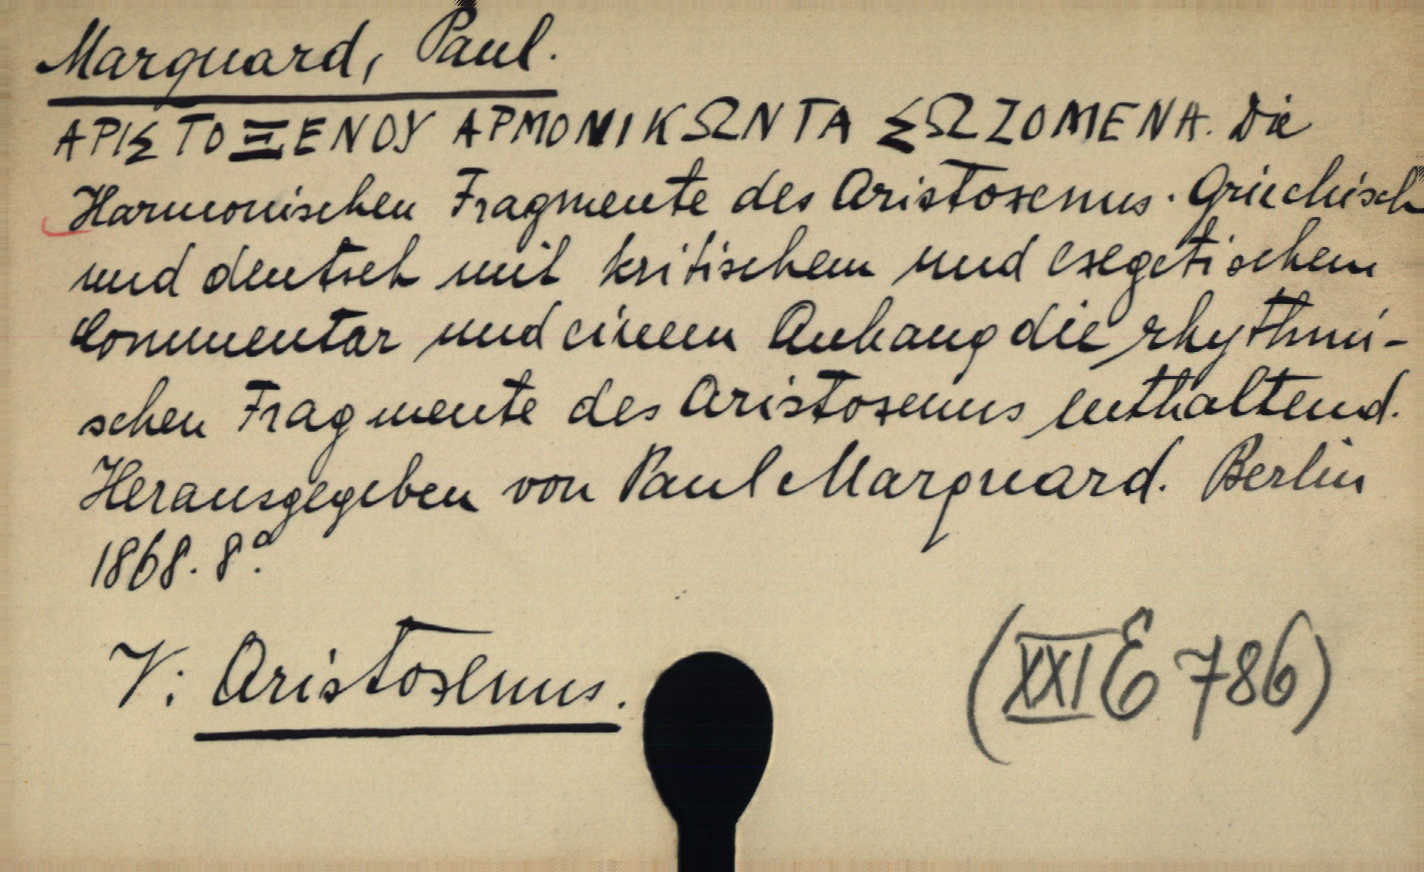 Marquard, Paul.
ΑΡΙΣΤΟΞΕΝΟΥ ΑΡΜΟΝΙΚΩΝ ΤΑ ΣΩΖΟΜΕΝΑ. Die
Harmonischen Fragmente des Aristoxenus. Griechisch
und deutsch mit kritischem und exegetischem
Commentar und einem Anhang die rhythmi-
schen Fragmente des Aristoxenus enthaltend.
Herausgegeben von Paul Marquard. Berlin
1868. 8º.
V: Aristoxenus.
(XXI E 786)